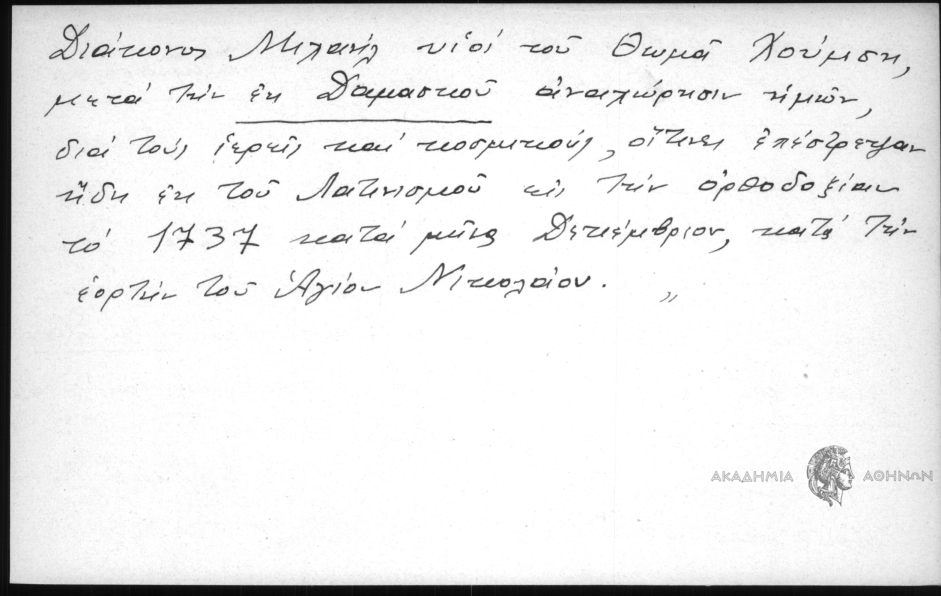 Διάκονος Μιχαήλ υἱοί τοῦ Θωμᾶ Χούμση,
μετά τήν ἐκ Δαμασκοῦ ἀναχώρησιν ἡμῶν,
διά τούς ἱερεῖς καί κοσμικούς, οἵτινες ἐπέστρεψαν
ἤδη ἐκ τοῦ Λατινισμοῦ εἰς τήν ὀρθοδοξίαν
τό 1737 κατά μῆνα Δεκέμβριον, κατά τήν
ἑορτήν τοῦ Ἁγίου Νικολάου. "
ΑΚΑΔΗΜΙΑ ΑΘΗΝΩΝ